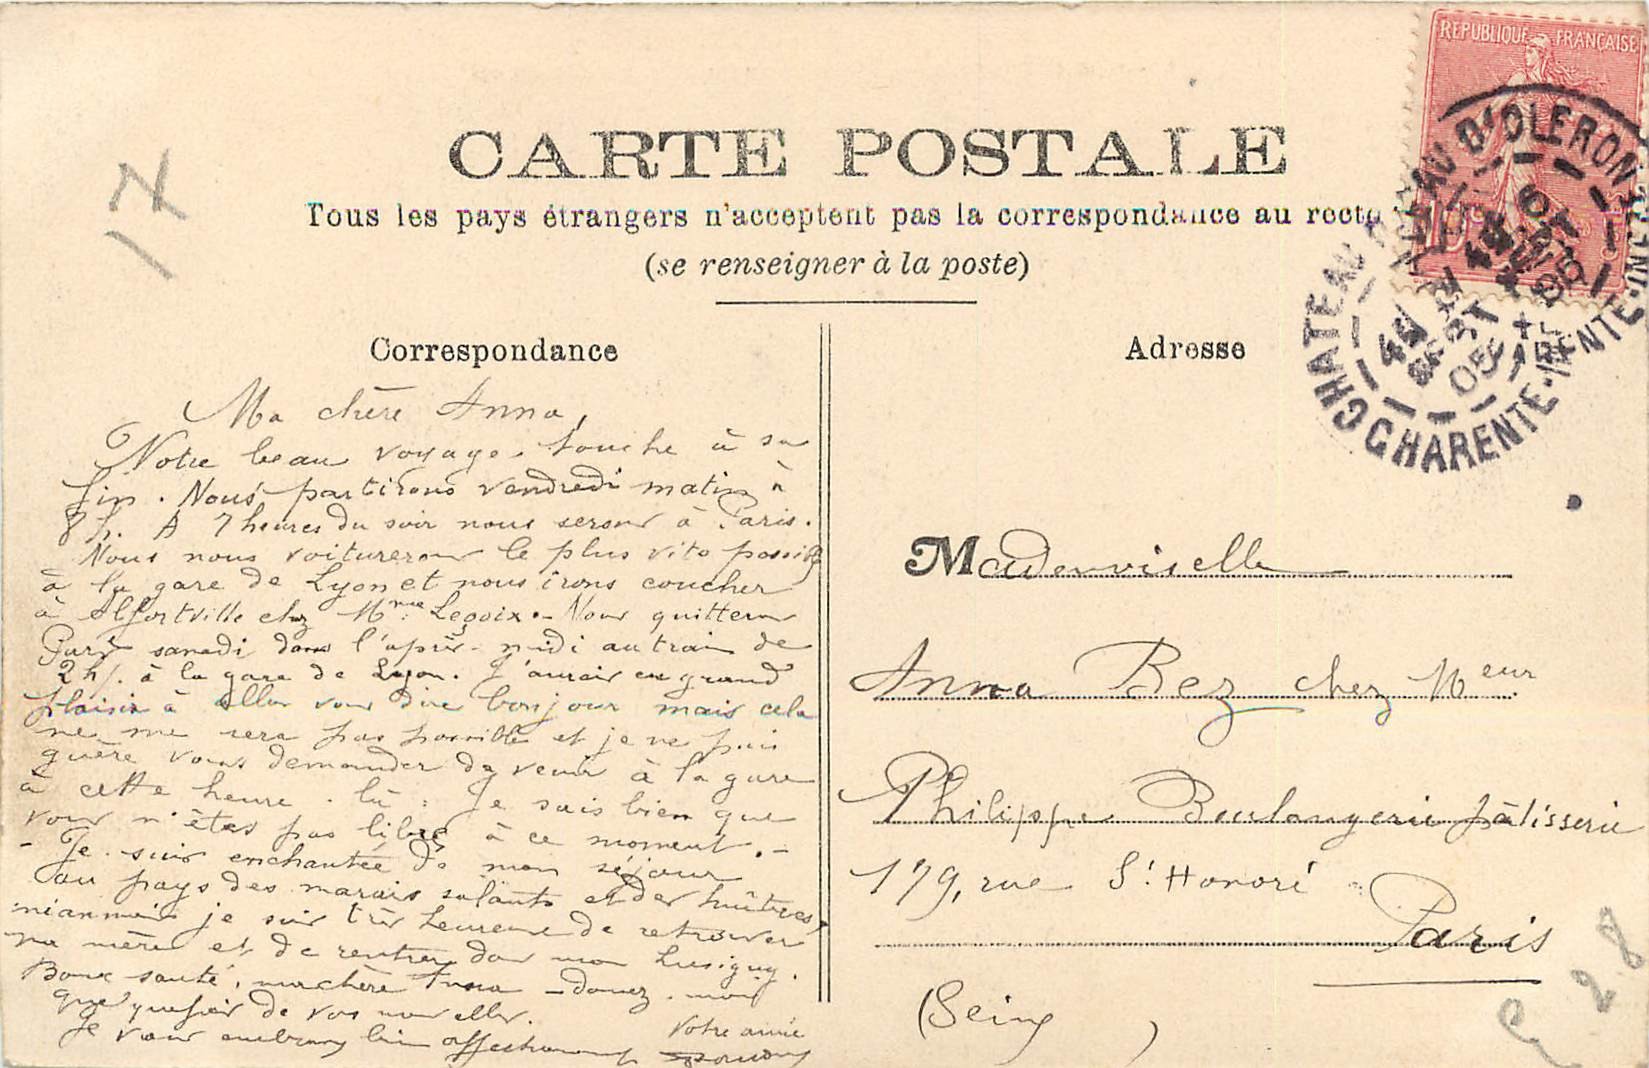 CARTE POSTALE
Tous les pays étrangers n'acceptent pas la correspondance au recto
(se renseigner à la poste)
REPUBLIQUE FRANÇAISE
CHATEAU D'OLERON
CHARENTE-INF
05
Correspondance
Ma chère Anna,
Notre beau voyage touche à sa
fin. Nous partirons vendredi matin à
8 h. A 7 heures du soir nous serons à Paris.
Nous nous voiturerons le plus vite possible
à la gare de Lyon et nous irons coucher
à Alfortville chez Mme Legoix. - Nous quitterons
Paris samedi dans l'après-midi au train de
2 h. à la gare de Lyon. J'aurais eu grand
plaisir à aller vous dire bonjour mais cela
ne me sera pas possible et je ne puis
guère vous demander de venir à la gare
à cette heure-là : Je sais bien que
vous n'êtes pas libre à ce moment. -
- Je suis enchantée de mon séjour
au pays des marais salants et des huîtres
néanmoins je suis très heureuse de retrouver
ma mère et de rentrer dans mon Lusigny.
Bonne santé, ma chère Anna - donnez-moi
quelquefois de vos nouvelles.
Je vous embrasse bien affectueusement
Votre amie
Adresse
Mademoiselle
Anna Bez chez Meur
Philippe Boulangerie pâtisserie
179, rue St Honoré
Paris
(Seine)
28